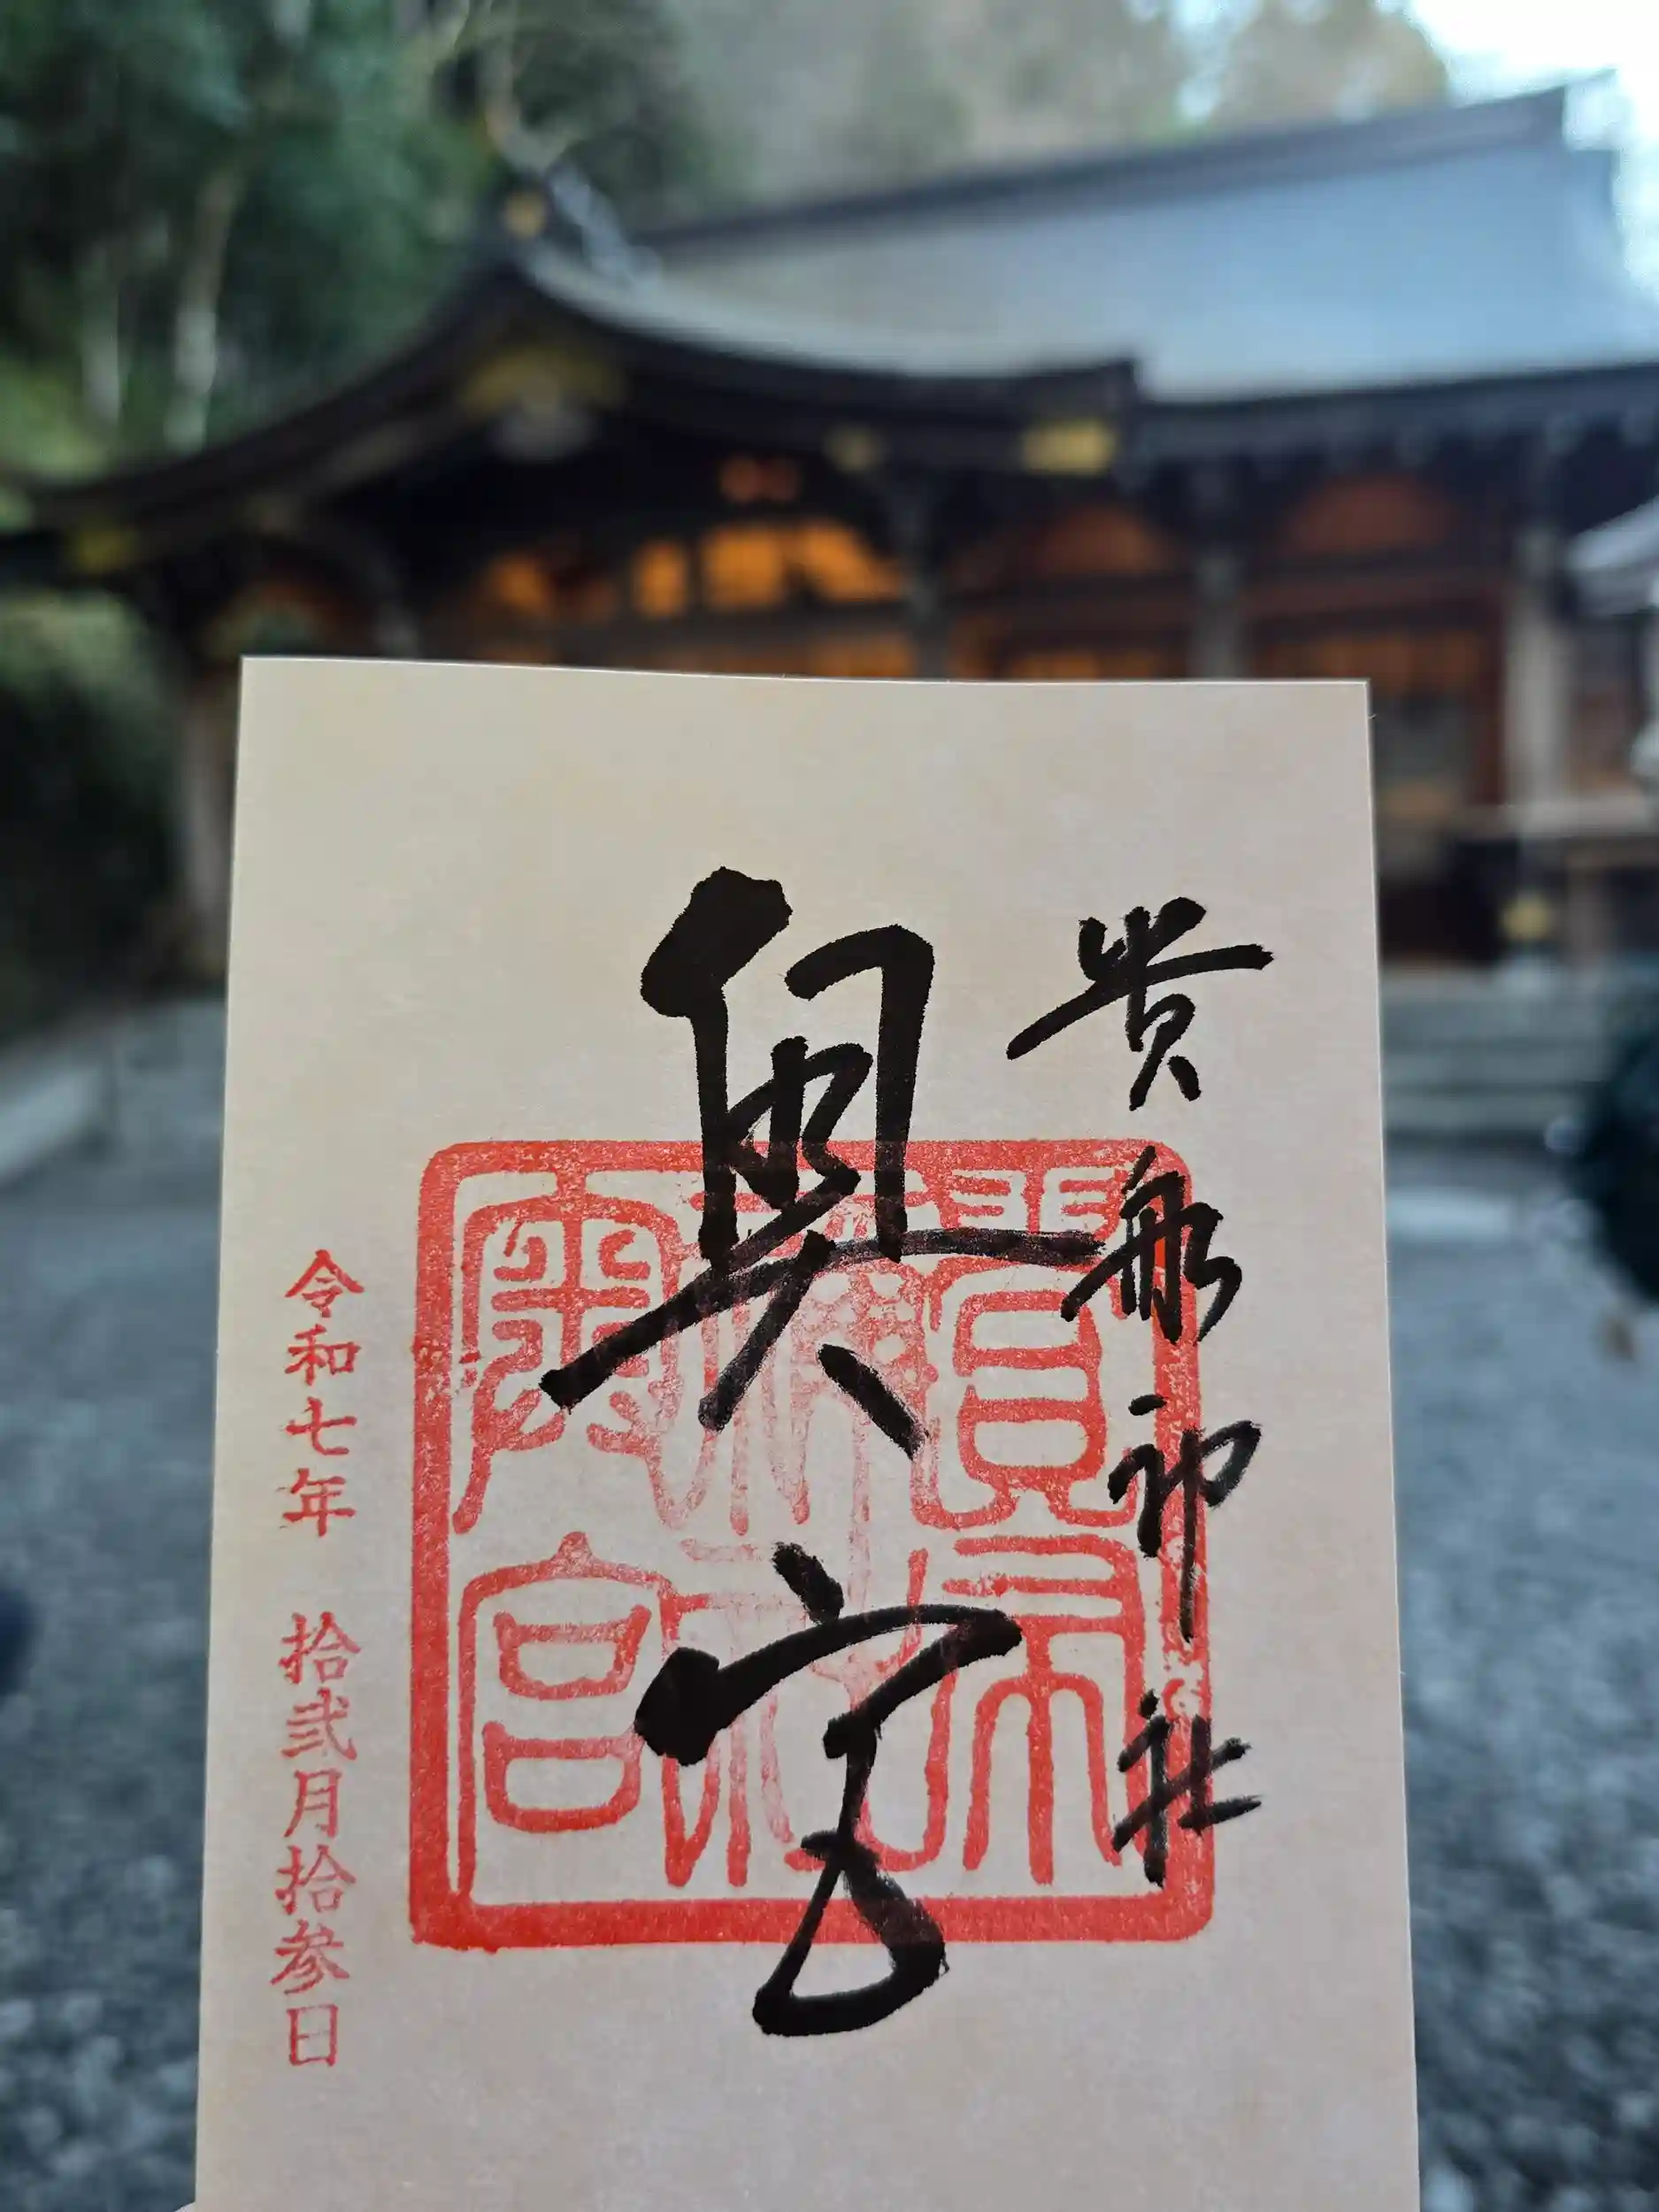 貴船神社
奥宮
貴布
禰社
奥宮
令和七年 拾弐月拾参日